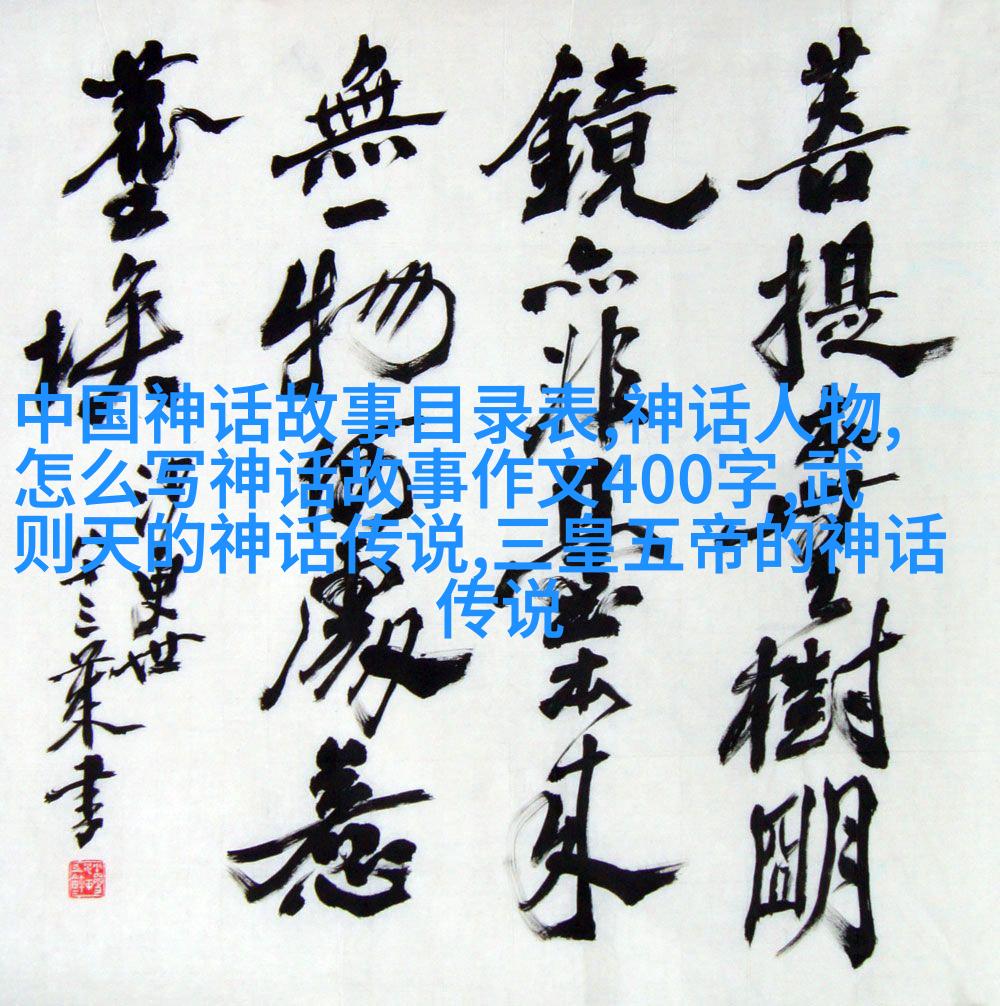 中国神话故事目录表,神话人物,
怎么写神话故事作文400字,武
则天的神话传说,三皇五帝的神话
传说
菩提樹明
鏡亦非臺本来
無一物何處惹
塵埃